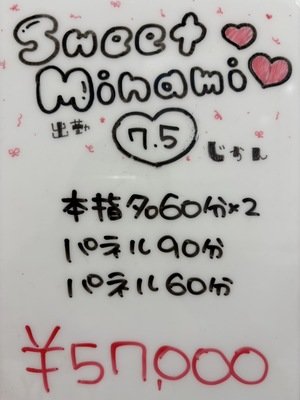 Sweet
Minami
出勤 7.5 じかん
本指名60分×2
パネル90分
パネル60分
¥57,000